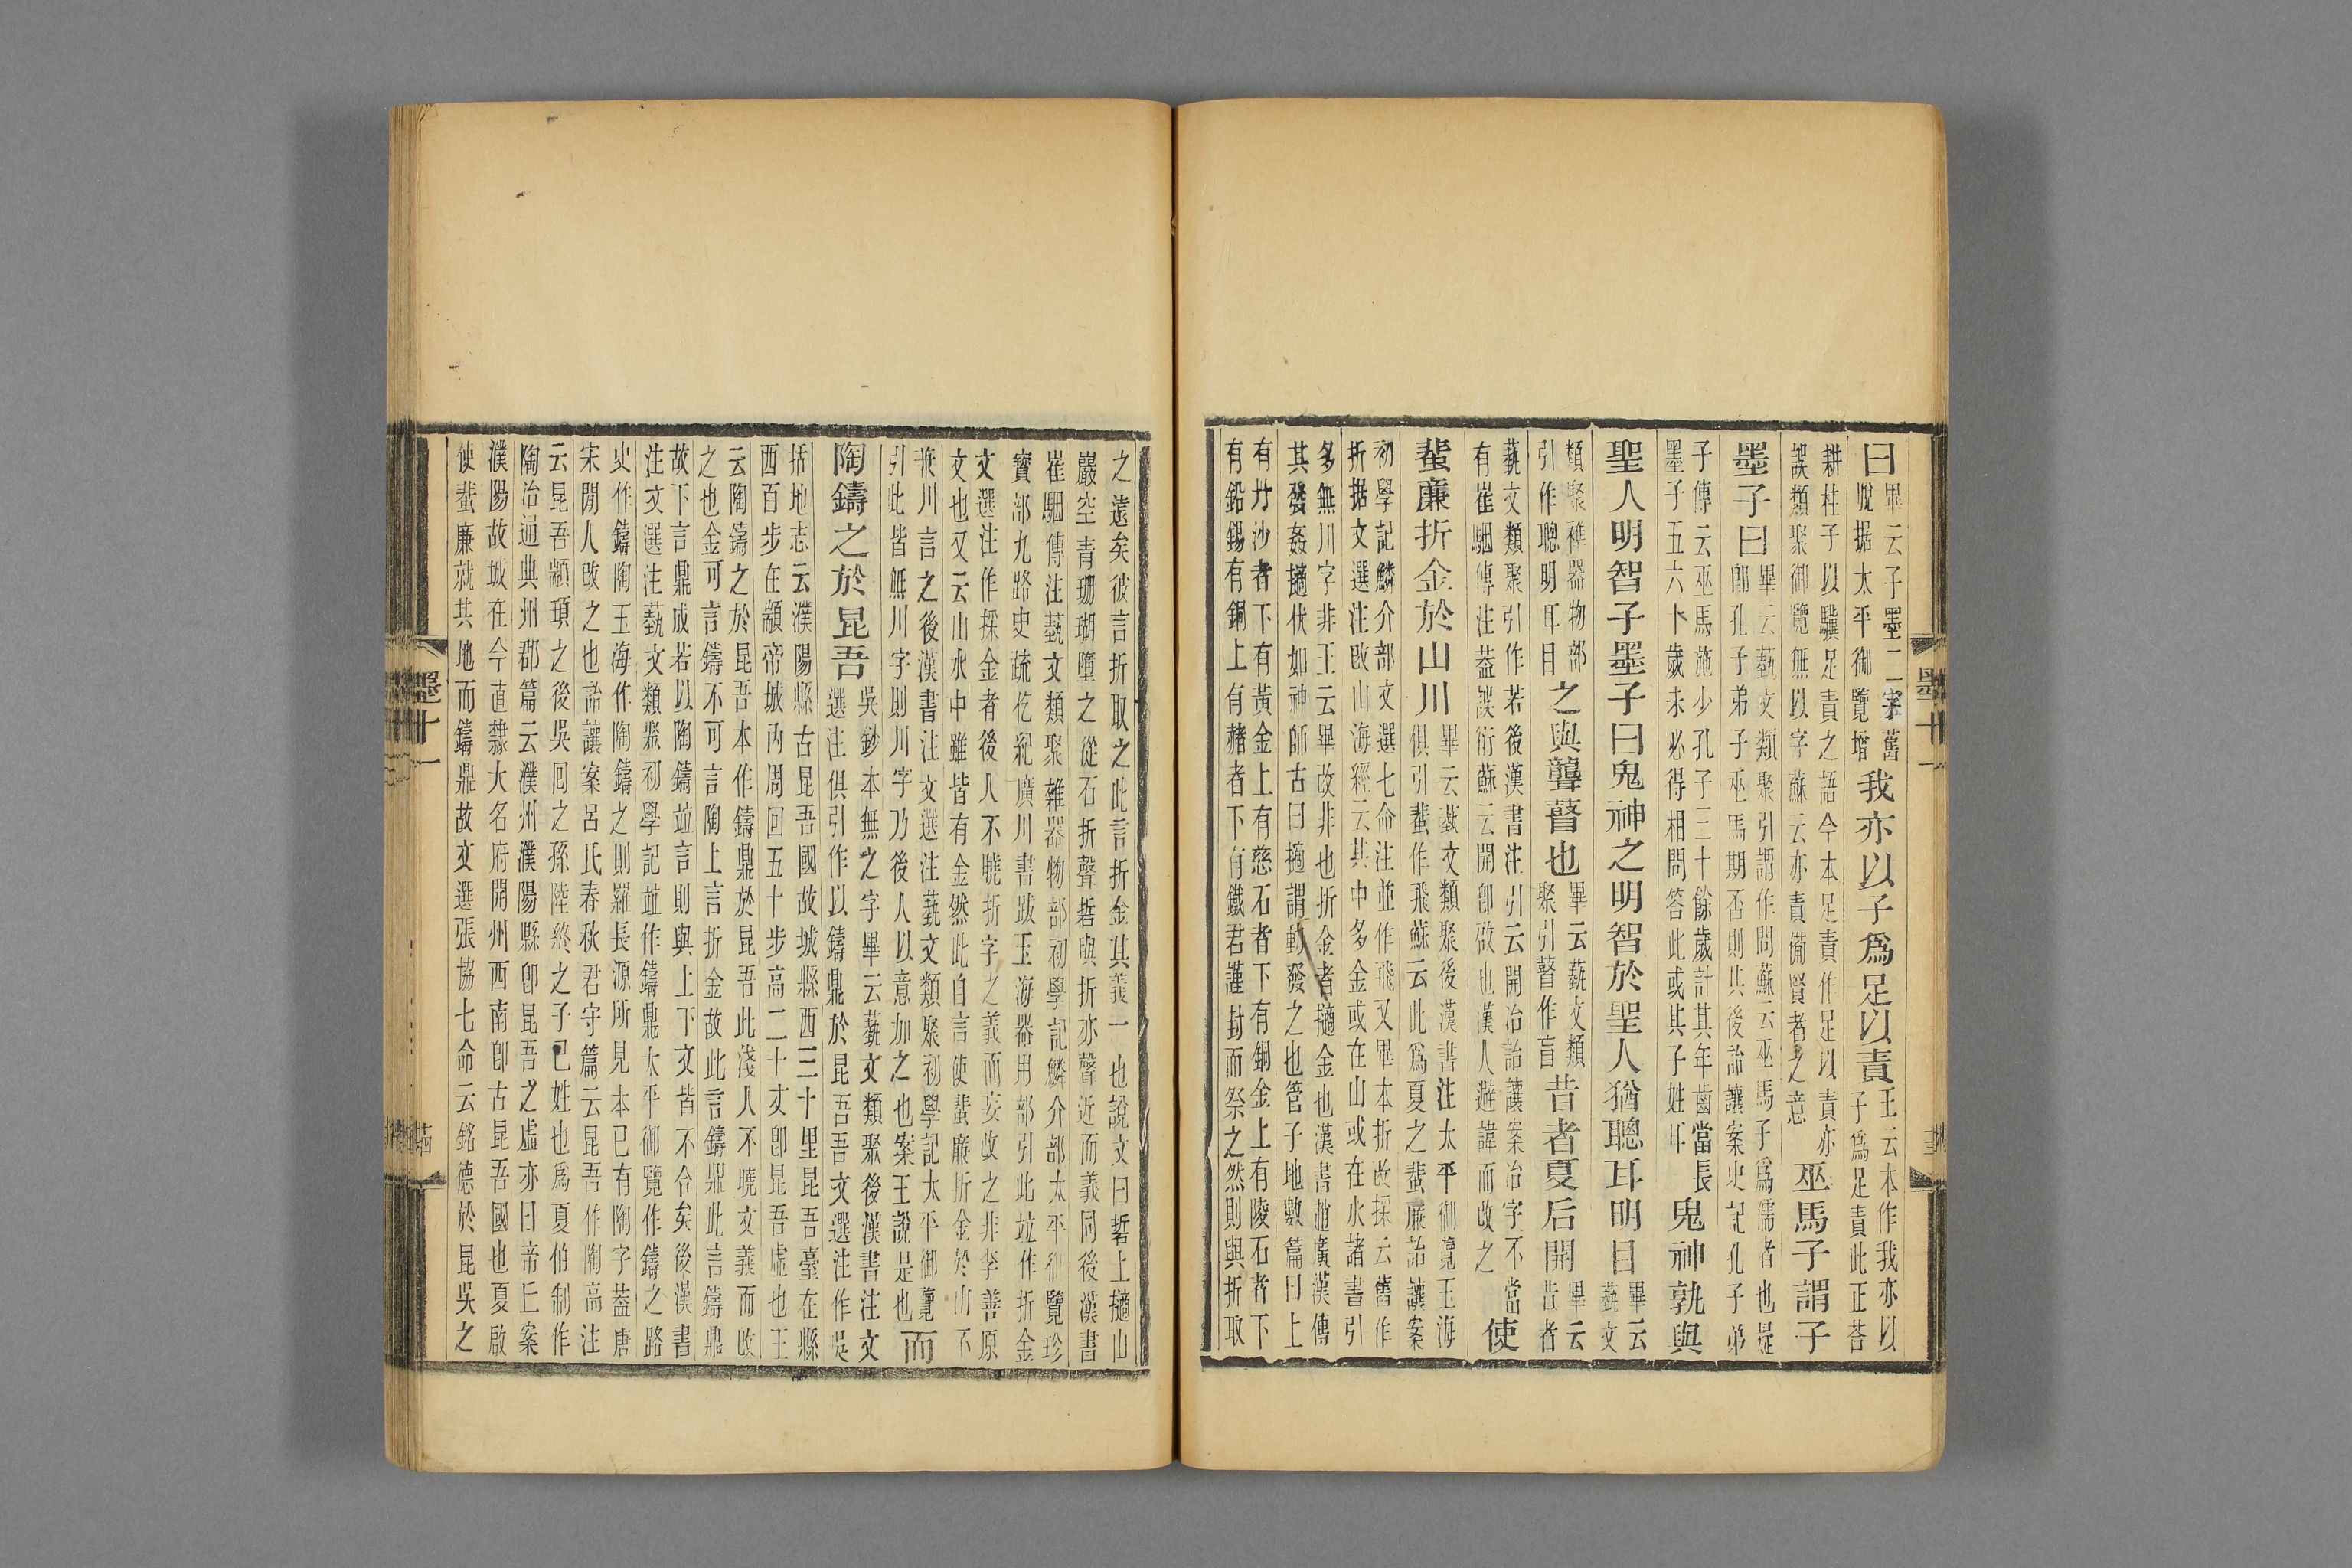 曰畢云子墨二字舊
脫据太平御覽增我亦以子爲足以責王云本作我亦以
子爲足責此正荅
耕柱子以驥足責之語今本足責作足以責亦
誤類聚御覽無以字蘇云亦責備賢者之意巫馬子謂子
墨子曰畢云藝文類聚引謂作問蘇云巫馬子爲儒者也疑
卽孔子弟子巫馬期否則其後詒讓案史記孔子弟
子傳云巫馬施少孔子三十餘歲計其年齒當長
墨子五六十歲未必得相問答此或其子姓耳鬼神孰與
聖人明智子墨子曰鬼神之明智於聖人猶聰耳明目畢云
藝文
類聚襍器物部
引作聰明耳目之與聾瞽也畢云藝文類
聚引瞽作盲昔者夏后開畢云
昔者
藝文類聚引作若後漢書注引云開冶詒讓案冶字不當
有崔駰傳注葢誤衍蘇云開卽啟也漢人避諱而改之使
蜚廉折金於山川畢云藝文類聚後漢書注太平御覽玉海
俱引蜚作飛蘇云此爲夏之蜚廉詒讓案
初學記鱗介部文選七命注並作飛又畢本折改採云舊作
折据文選注改山海經云其中多金或在山或在水諸書引
多無川字非王云畢改非也折金者擿金也漢書趙廣漢傳
其發姦擿伏如神師古曰擿謂動發之也管子地數篇曰上
有丹沙者下有黃金上有慈石者下有銅金上有陵石者下
有鉛錫有銅上有赭者下有鐵君謹封而祭之然則與折取
之遠矣彼言折取之此言折金其義一也說文曰硩上擿山
巖空青珊瑚墮之從石折聲硩與折亦聲近而義同後漢書
崔駰傳注藝文類聚雜器物部初學記鱗介部太平御覽珍
寶部九路史疏仡紀廣川書跋玉海器用部引此竝作折金
文選注作採金者後人不曉折字之義而妄改之非李善原
文也又云山水中雖皆有金然此自言使蜚廉折金於山不
兼川言之後漢書注文選注藝文類聚初學記太平御覽
引此皆無川字則川字乃後人以意加之也案王說是也而
陶鑄之於昆吾吳鈔本無之字畢云藝文類聚後漢書注文
選注俱引作以鑄鼎於昆吾吾文選注作吳
括地志云濮陽縣古昆吾國故城縣西三十里昆吾臺在縣
西百步在顓帝城內周回五十步高二十丈卽昆吾虛也王
云陶鑄之於昆吾本作鑄鼎於昆吾此淺人不曉文義而改
之也金可言鑄不可言陶上言折金故此言鑄鼎此言鑄鼎
故下言鼎成若以陶鑄竝言則與上下文皆不合矣後漢書
注文選注藝文類聚初學記竝作鑄鼎太平御覽作鑄之路
史作鑄陶玉海作陶鑄之則羅長源所見本已有陶字葢唐
宋閒人改之也詒讓案呂氏春秋君守篇云昆吾作陶高注
云昆吾顓頊之後吳回之孫陸終之子己姓也爲夏伯制作
陶冶通典州郡篇云濮州濮陽縣卽昆吾之虛亦曰帝丘案
濮陽故城在今直隸大名府開州西南卽古昆吾國也夏啟
使蜚廉就其地而鑄鼎故文選張協七命云銘德於昆吳之
墨十一